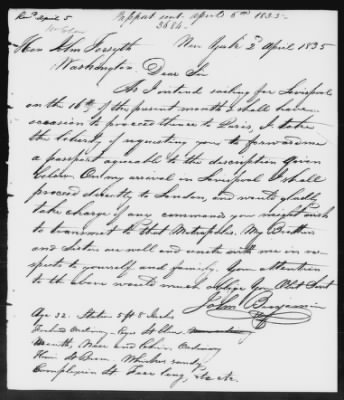 Recd April 5
Passport sent April 6th 1835
3684
New York 2d April 1835
Hon John Forsyth
Washington Dear Sir
As I intend sailing for Liverpool
on the 16th of the present month & shall have
occasion to proceed thence to Paris, I take
the liberty of requesting you to forward me
a passport agreeable to the description given
below. On my arrival in Liverpool I shall
proceed directly to London, and would gladly
take charge of any commands you might wish
to transmit to that Metropolis. My Brother
and Sister are well and unite with me in re-
spects to yourself and family. Your attention
to the above would much oblige Your Obt Servt
John Benjamin
Age 22. Stature 5 ft 8 Inches
Forehead Ordinary - Eyes Lt Blue
Mouth, Nose and Chin, Ordinary
Hair Lt Brown Whiskers sandy
Complexion Lt Face long, etc etc.